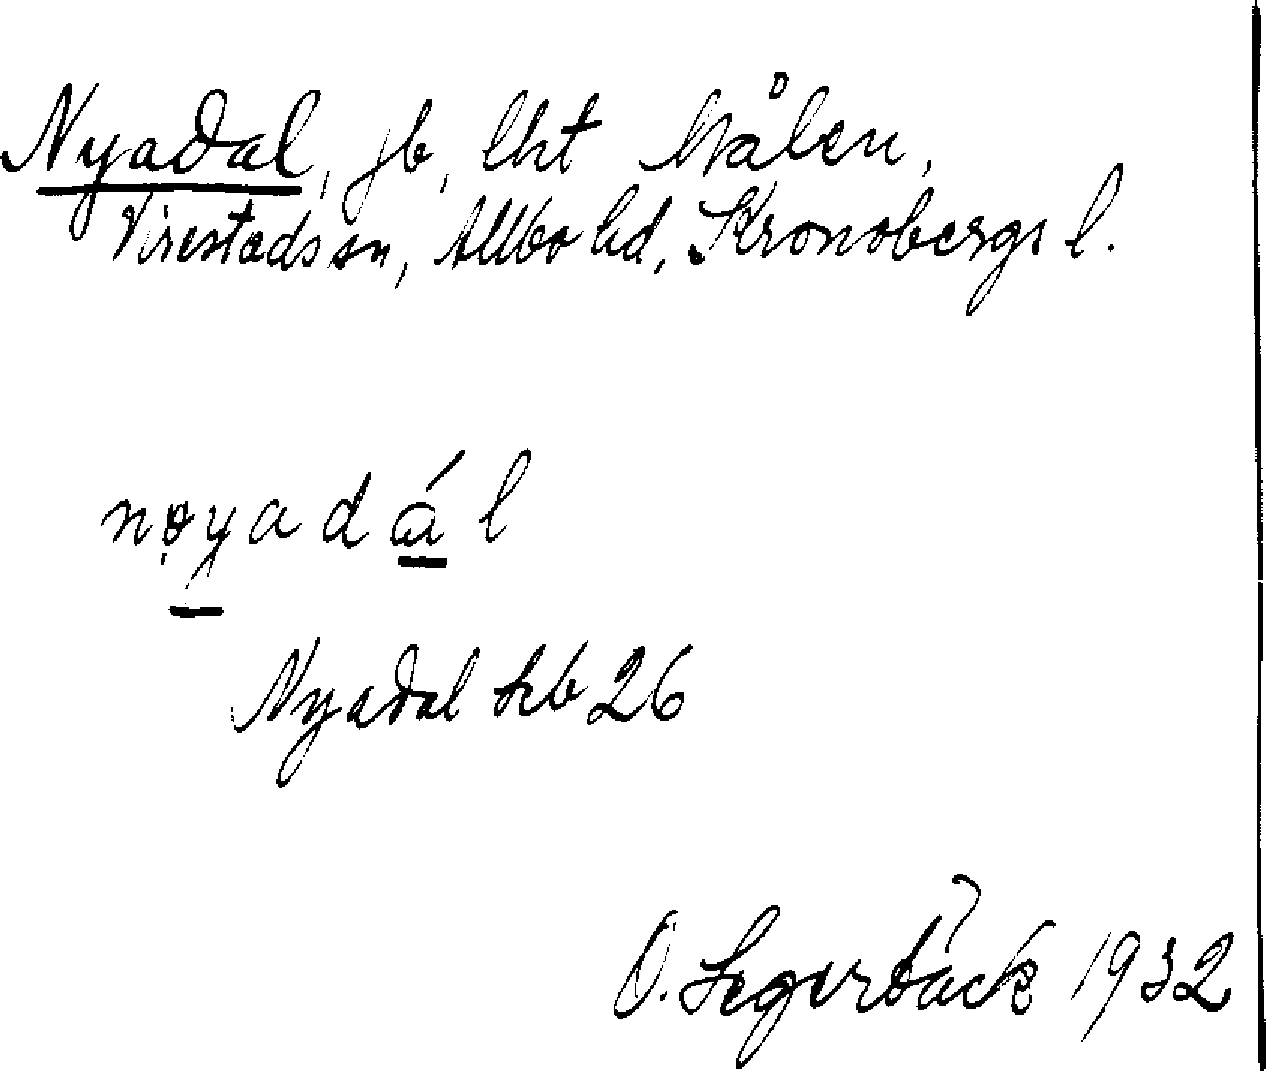 Nyadal, jb, lht Målen,
Virestads sn, Allbo hd, Kronobergs l.
nøyadál
Nyadal hb 26
O. Segerbäck 1932